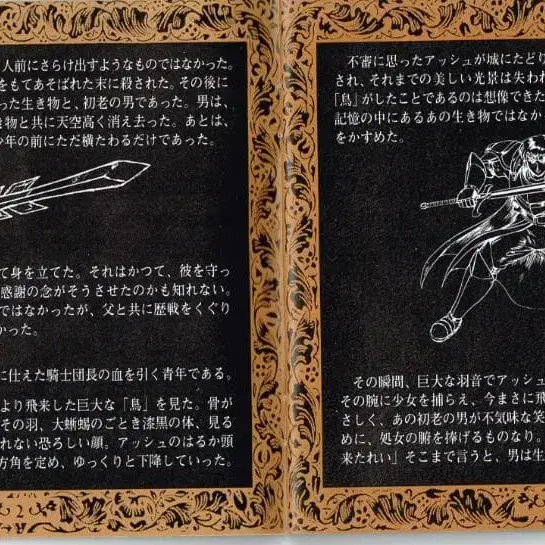 人前にさらけ出すようなものではなかった。
をもてあそばれた末に殺された。その後に
った生き物と、初老の男であった。男は、
き物と共に天空高く消え去った。あとは、
少年の前にただ横たわるだけであった。
て身を立てた。それはかつて、彼を守っ
感謝の念がそうさせたのかも知れない。
ではなかったが、父と共に歴戦をくぐり
かった。
に仕えた騎士団長の血を引く青年である。
より飛来した巨大な「鳥」を見た。骨が
その羽、大蜥蜴のごとき漆黒の体、見る
れない恐ろしい顔。アッシュのはるか頭
方角を定め、ゆっくりと下降していった。
不審に思ったアッシュが城にたどり
され、それまでの美しい光景は失われ
「鳥」がしたことであるのは想像できた
記憶の中にあるあの生き物ではなか
をかすめた。
その瞬間、巨大な羽音でアッシュ
その腕に少女を捕らえ、今まさに飛
さしく、あの初老の男が不気味な笑
めに、処女の腑を捧げるものなり。
来たれい」そこまで言うと、男は生